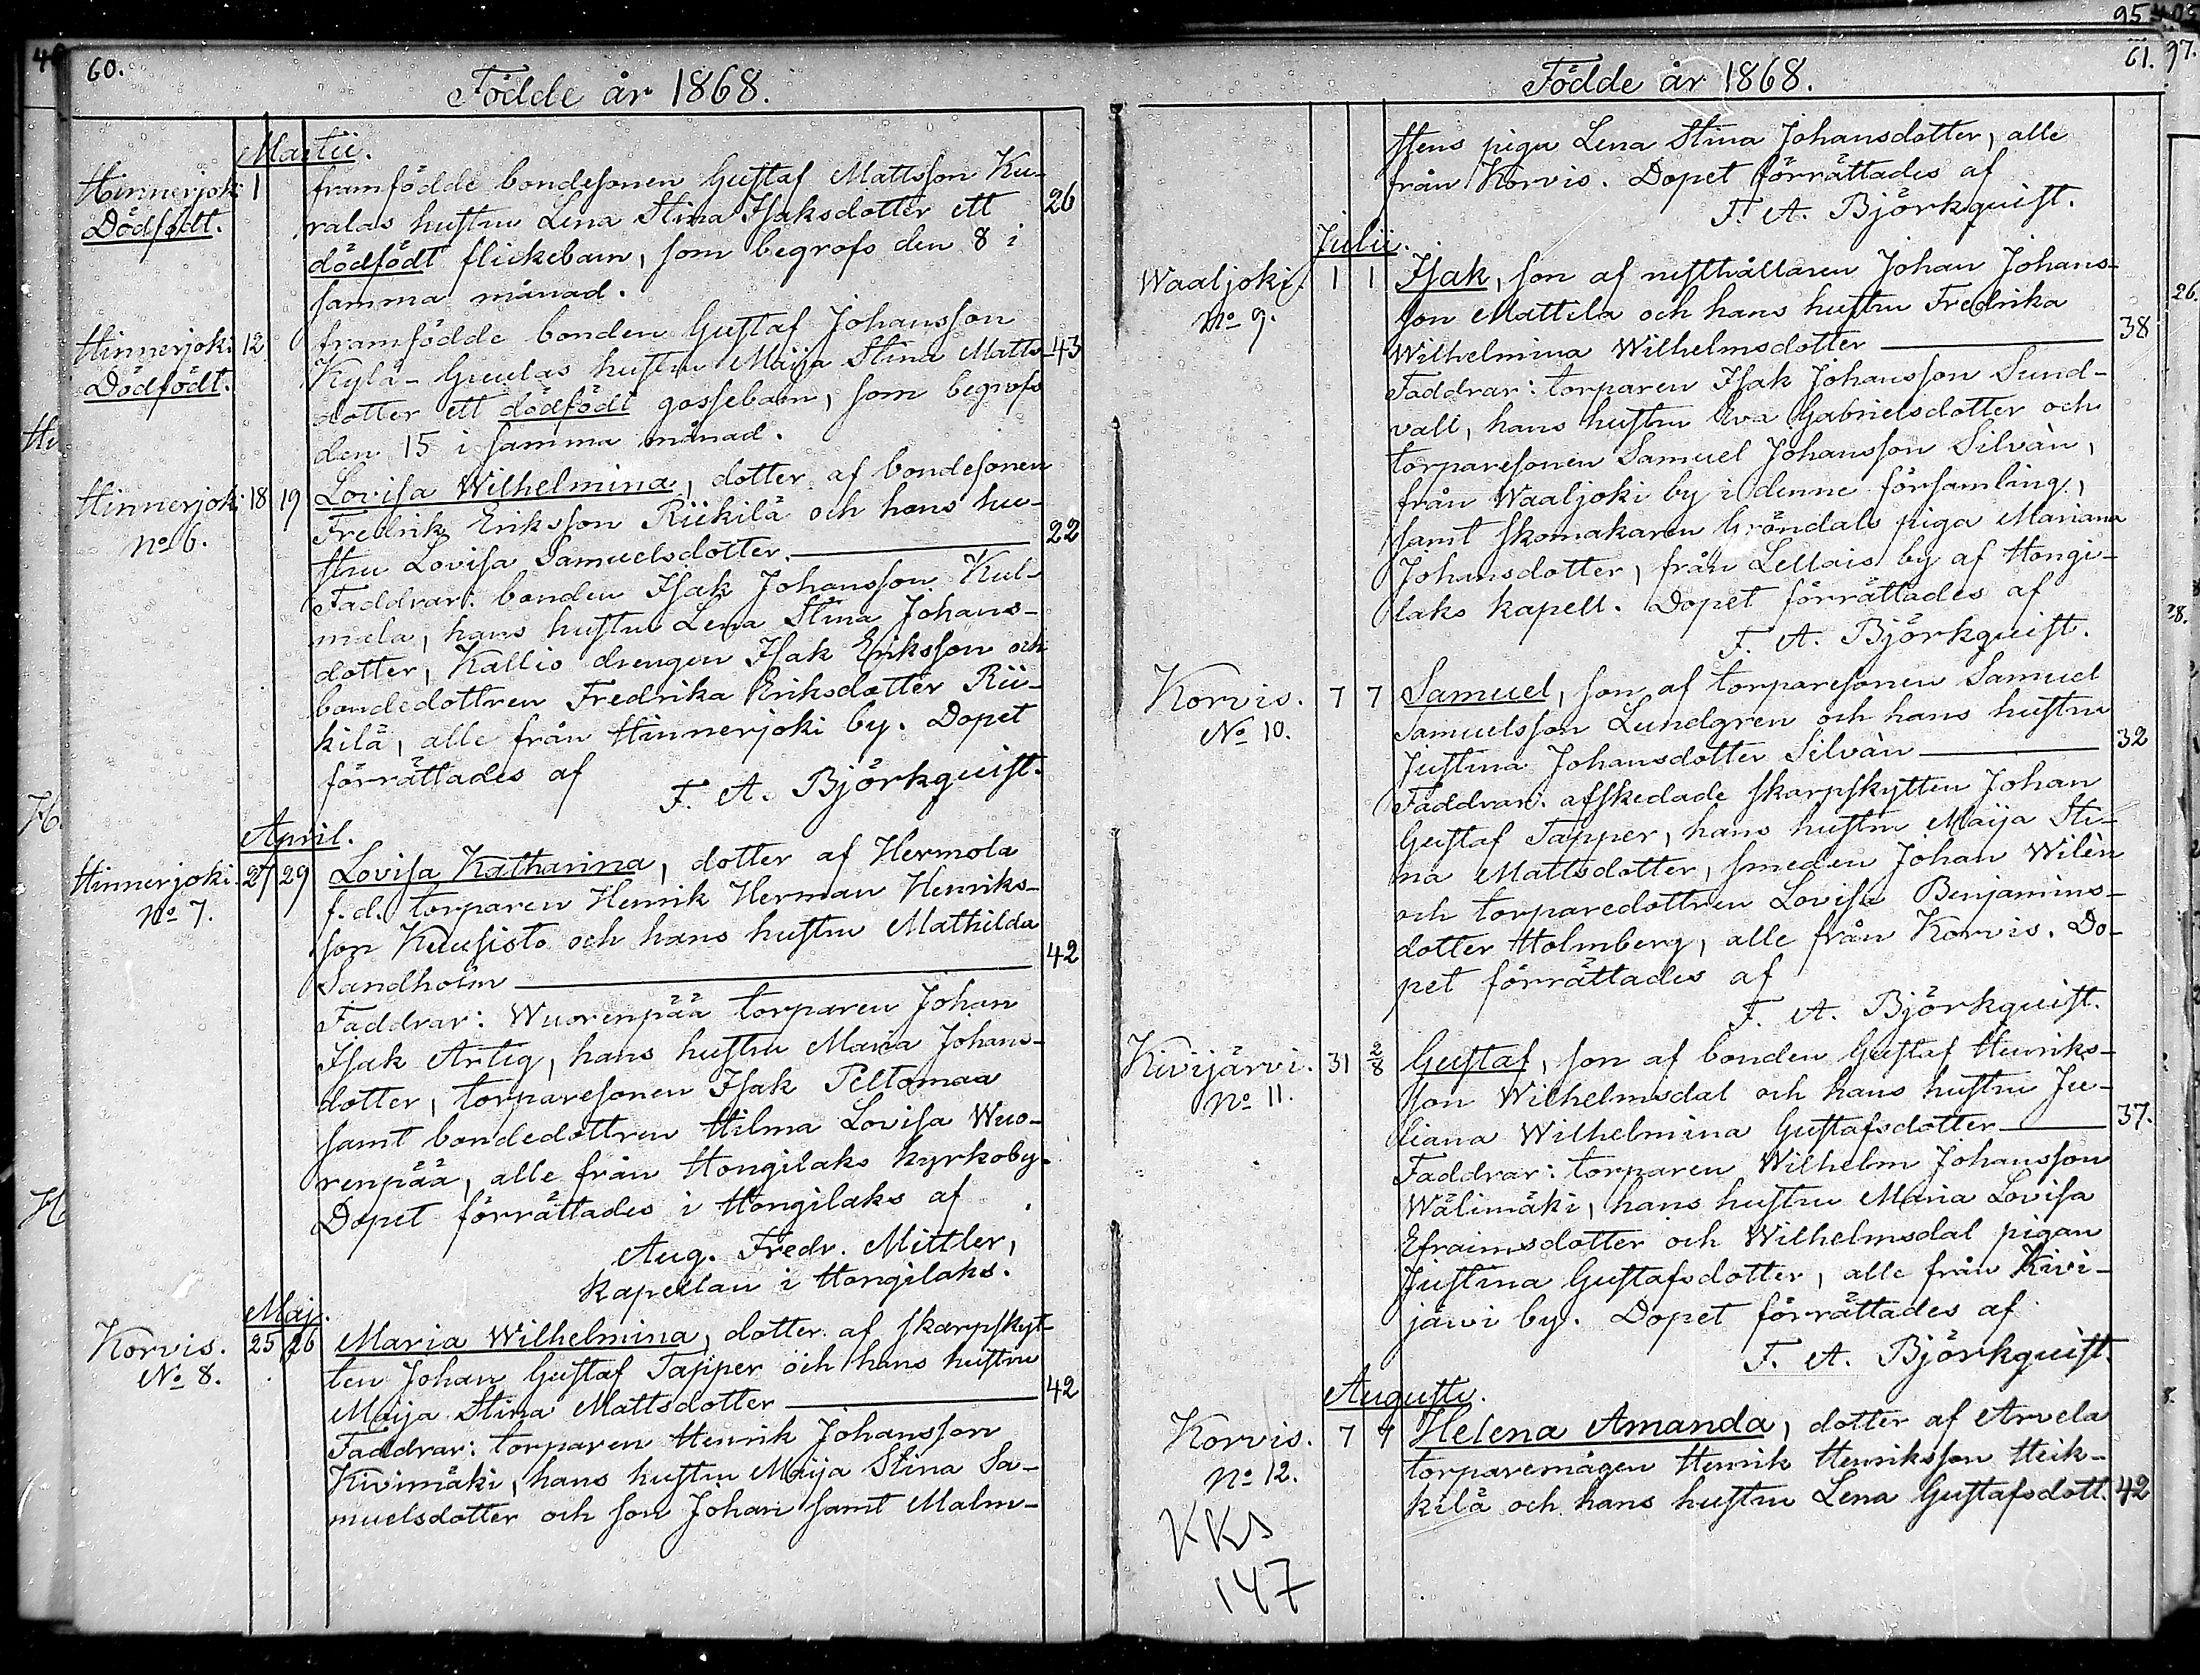 95
60.
Födde år 1868.
Martii.
Hinnerjoki 1 framfödde bondesonen Gustaf Mattsson Ku-
Dödfödt. ralas hustru Lena Stina Isaksdotter ett 26
dödfödt flickebarn, som begrofs den 8 i
samma månad.
Hinnerjoki 12 framfödde bonden Gustaf Johansson
Dödfödt. Kylä-Guulas hustru Maija Stina Matts- 43
dotter ett dödfödt gossebarn, som begrofs
den 15 i samma månad.
Hinnerjoki 18 19 Lovisa Wilhelmina, dotter af bondesonen
No 6. Fredrik Eriksson Riikilä och hans hu-
stru Lovisa Samuelsdotter. 22
Faddrar: bonden Isak Johansson Kul-
mala, hans hustru Lena Stina Johans-
dotter, Kallio drengen Isak Eriksson och
bondedottren Fredrika Eriksdotter Rii-
kilä, alle från Hinnerjoki by. Dopet
förrättades af
F. A. Björkquist.
April.
Hinnerjoki 27 29 Lovisa Katharina, dotter af Hermola
No 7. f.d. torparen Henrik Herman Henriks-
son Kuusisto och hans hustru Mathilda
Sandholm 42
Faddrar: Wuorenpää torparen Johan
Isak Artig, hans hustru Maria Johans-
dotter, torparesonen Isak Peltomaa
samt bondedottren Hilma Lovisa Wuo-
renpää, alle från Hongilaks kyrkoby.
Dopet förrättades i Hongilaks af
Aug. Fredr. Mittler,
kapellan i Hongilaks.
Maj.
Korvis. 25 26 Maria Wilhelmina, dotter af skarpskyt-
No 8. ten Johan Gustaf Tapper och hans hustru
Maija Stina Mattsdotter 42
Faddrar: torparen Henrik Johansson
Kivimäki, hans hustru Maija Stina Sa-
muelsdotter och son Johan samt Malm-
61.
97.
Födde år 1868.
stens piga Lena Stina Johansdotter, alle
från Korvis. Dopet förrättades af
F. A. Björkquist.
Julii.
Waaljoki. 1 1 Isak, son af rusthållaren Johan Johans-
No 9. son Mattila och hans hustru Fredrika
Wilhelmina Wilhelmsdotter 38
Faddrar: torparen Isak Johansson Sund-
vall, hans hustru Eva Gabrielsdotter och
torparesonen Samuel Johansson Silvàn,
från Waaljoki by i denne församling,
samt skomakaren Gröndals piga Mariana
Johansdotter, från Lellais by af Hongi-
laks kapell. Dopet förrättades af
F. A. Björkquist.
Korvis. 7 7 Samuel, son af torparesonen Samuel
No 10. Samuelsson Lundgren och hans hustru
Justina Johansdotter Silvàn 32
Faddrar: afskedade skarpskytten Johan
Gustaf Tapper, hans hustru Maija Sti-
na Mattsdotter, smeden Johan Wilèn
och torparedottren Lovisa Benjamins-
dotter Holmberg, alle från Korvis. Do-
pet förrättades af
F. A. Björkquist.
Kivijärvi. 31 2/8 Gustaf, son af bonden Gustaf Henriks-
No 11. son Wilhelmsdal och hans hustru Ju-
liana Wilhelmina Gustafsdotter 37.
Faddrar: torparen Wilhelm Johansson
Wälimäki, hans hustru Maria Lovisa
Efraimsdotter och Wilhelmsdal pigan
Justina Gustafsdotter, alle från Kivi-
järvi by. Dopet förrättades af
F. A. Björkquist.
Augusti.
Korvis. 7 7 Helena Amanda, dotter af Arvela
No 12. torparemågen Henrik Henriksson Heik-
kilä och hans hustru Lena Gustafsdott. 42
KKs
147